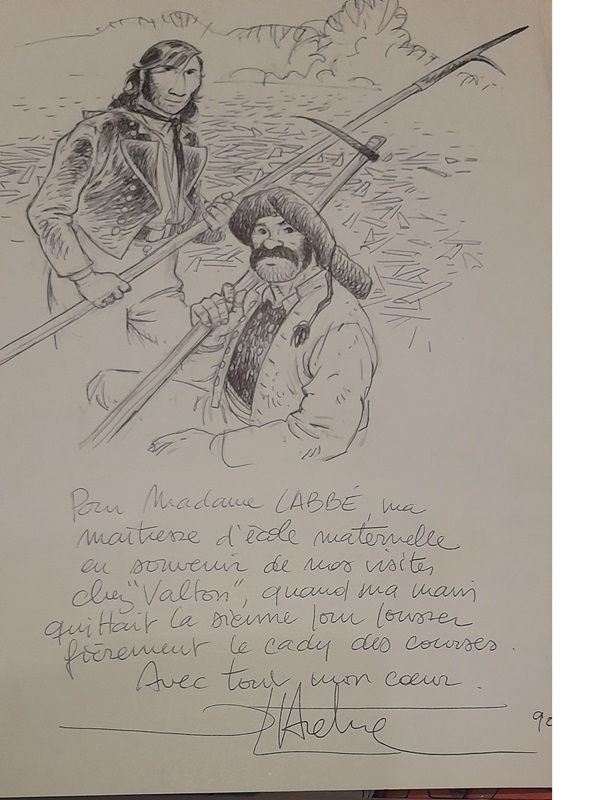 Pour Madame LABBÉ, ma
maîtresse d'école maternelle
en souvenir de nos visites
chez "Valton", quand ma main
quittait la sienne pour pousser
fièrement le cady des courses.
Avec tout mon cœur.